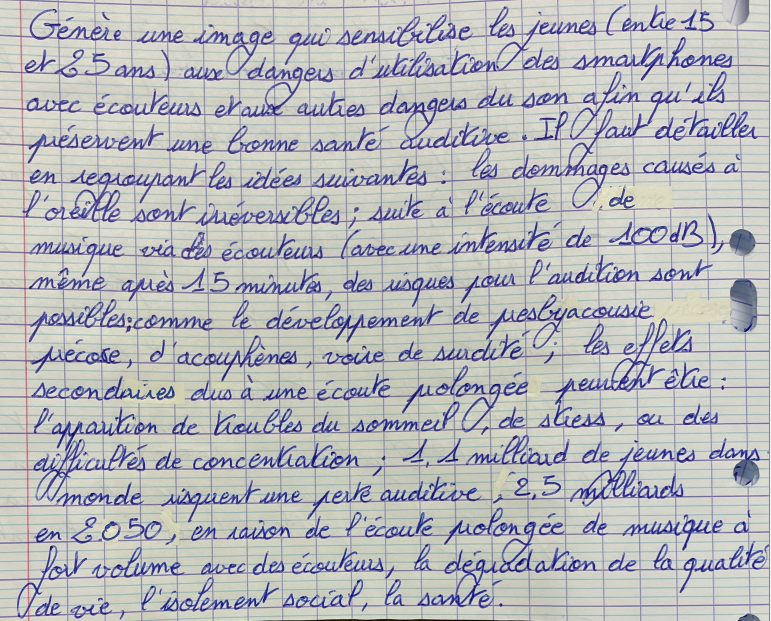 Génère une image qui sensibilise les jeunes (entre 15
et 25 ans) aux dangers d'utilisation des smartphones
avec écouteurs et aux autres dangers du son afin qu'ils
préservent une bonne santé auditive. Il faut détailler
en regroupant les idées suivantes : les dommages causés à
l'oreille sont irréversibles ; suite à l'écoute de
musique via des écouteurs (avec une intensité de 100 dB),
même après 15 minutes, des risques pour l'audition sont
possibles ; comme le développement de presbyacousie
précose, d'acouphènes, voire de surdité ; les effets
secondaires dus à une écoute prolongée peuvent être :
l'apparition de troubles du sommeil, de stress, ou des
difficultés de concentration ; 1,1 milliard de jeunes dans
monde risquent une perte auditive, 2,5 milliards
en 2050, en raison de l'écoute prolongée de musique à
fort volume avec des écouteurs, la dégradation de la qualité
de vie, l'isolement social, la santé.